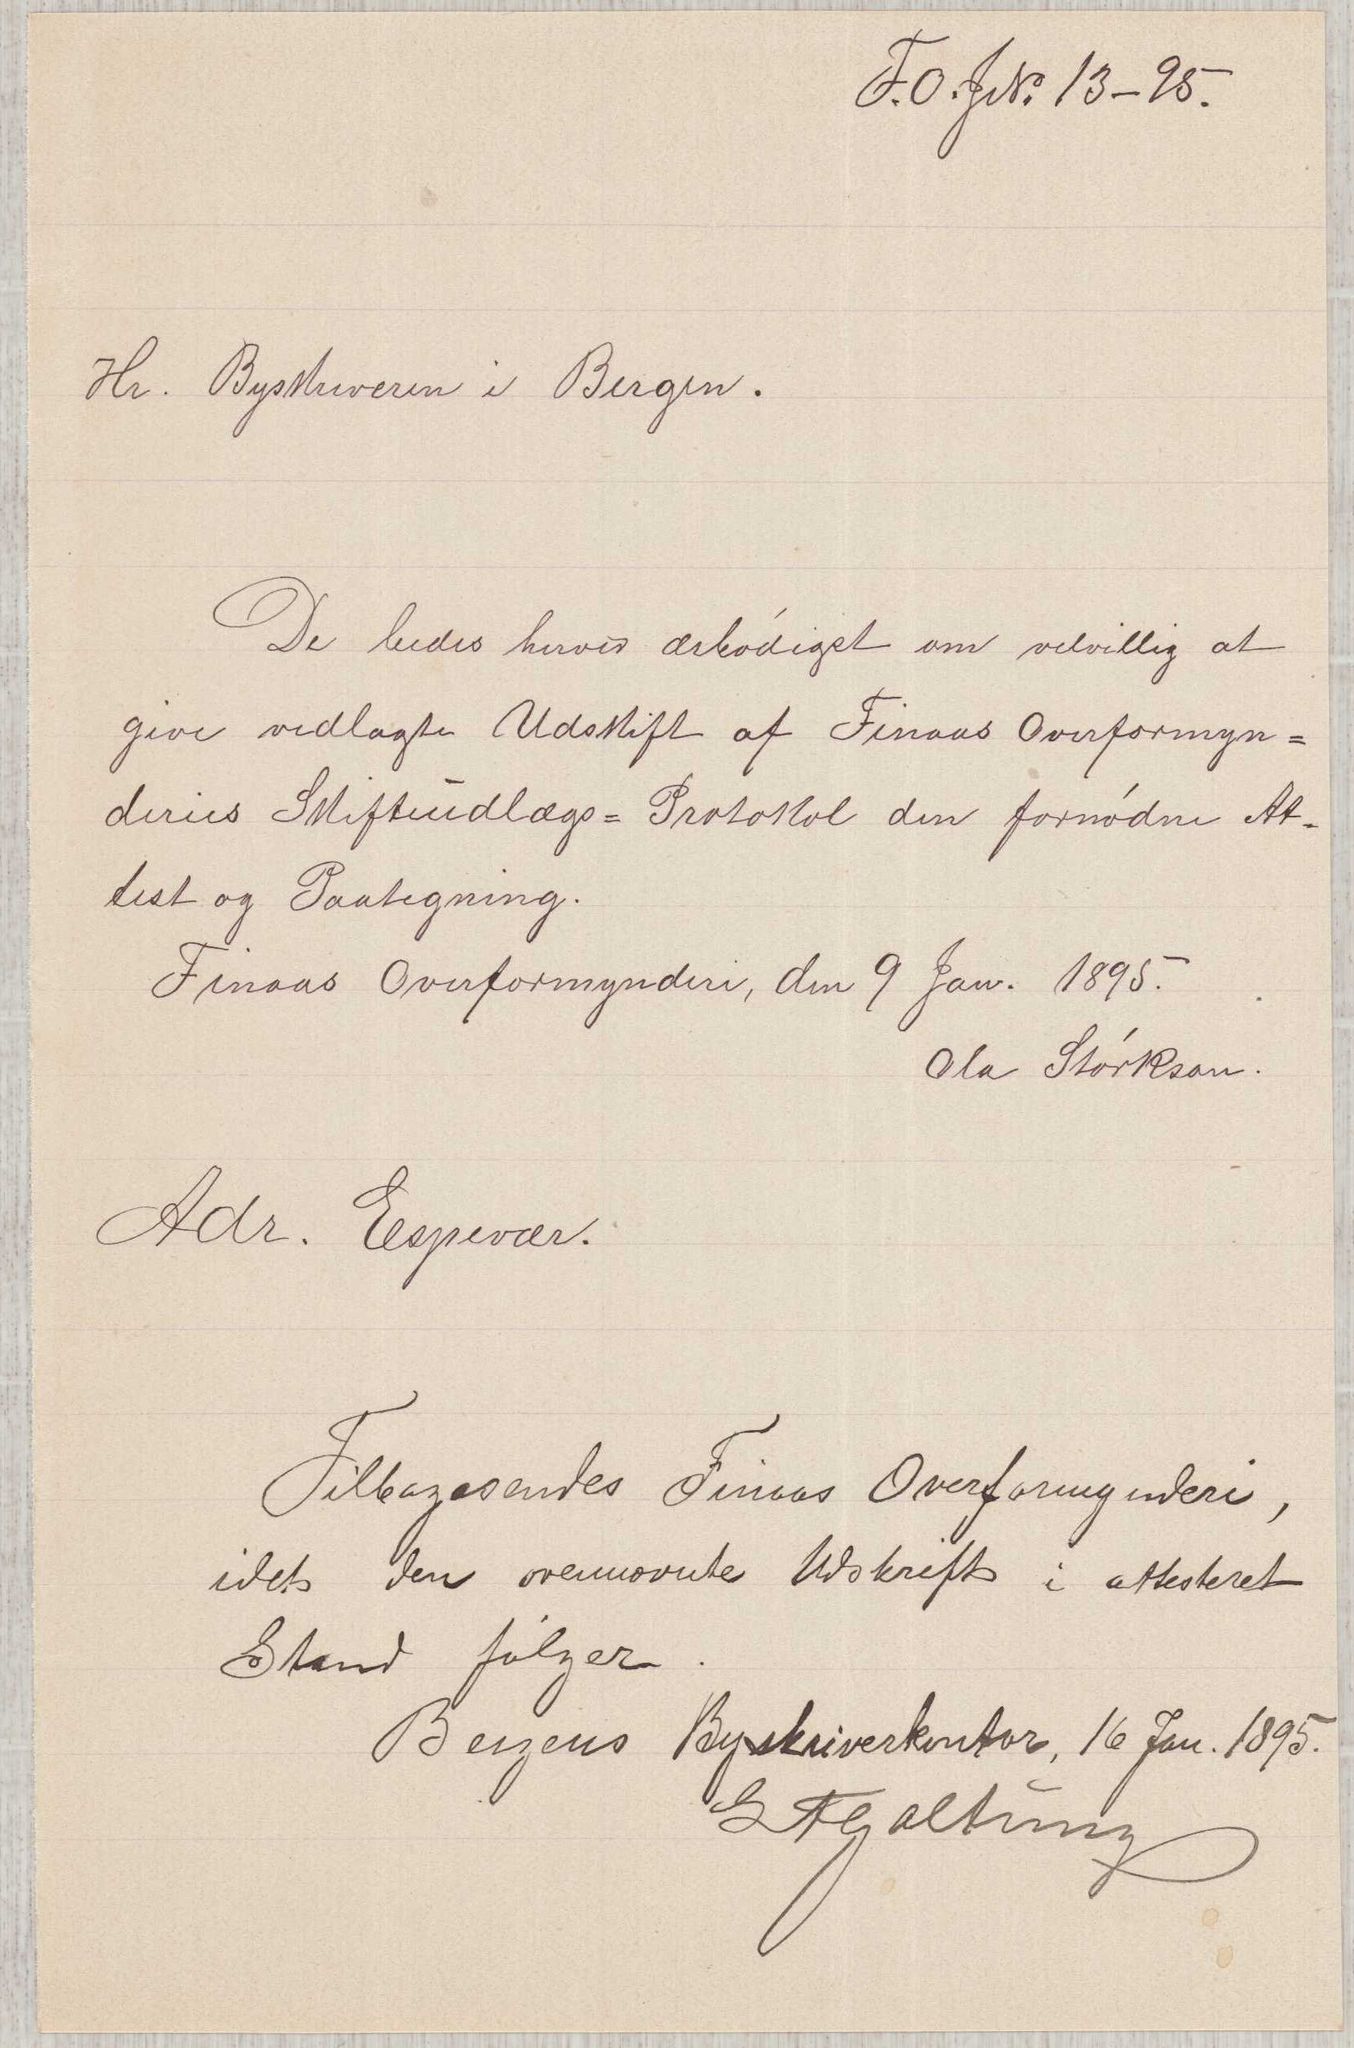 F.O. J.No. 13-95.
Hr. Byskriveren i Bergen.
De bedes herved ærbødigst om velvillig at
give vedlagte Udskrift af Finaas Overformyn=
deries Skifteudlægs=Protokol den fornødne At-
test og Paategning.
Finaas Overformynderi, den 9 Jan. 1895.
Ola Størkson.
Adr. Espevær.
Tilbagesendes Finaas Overformynderi,
idet den ovennævnte Udskrift i attesteret
Stand følger.
Bergens Byskriverkontor, 16 Jan. 1895.
Galtung